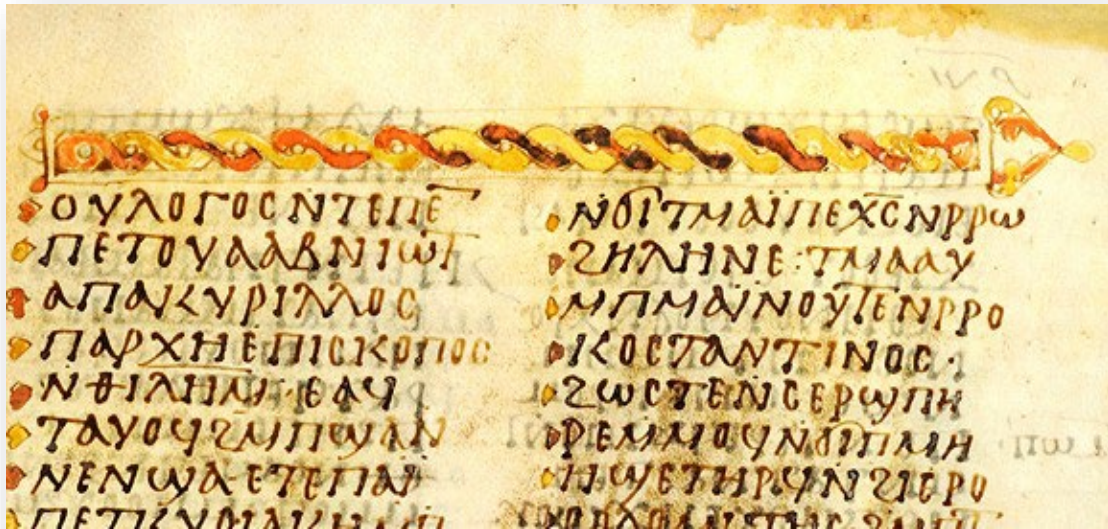 ⲟⲩⲗⲟⲅⲟⲥ ⲛⲧⲉⲡⲉ
ⲡⲉⲧⲟⲩⲁⲁⲃ ⲛⲓⲱⲧ
ⲁⲡⲁ ⲕⲩⲣⲓⲗⲗⲟⲥ
ⲡⲁⲣⲭⲏⲉⲡⲓⲥⲕⲟⲡⲟⲥ
ⲛⲑⲓⲗⲏⲙ· ⲉⲁϥ
ⲧⲁⲩⲟϥ ϩⲙ ⲡϣⲁ ⲛ
ⲛⲉⲛϣⲁ· ⲉⲧⲉ ⲡⲁⲓ
ⲛϭⲓ ⲧⲙⲁⲓⲡⲉⲭ̅ⲥ̅ ⲛⲣⲣⲱ
ϩⲏⲗⲏⲛⲉ· ⲧⲙⲁⲁⲩ
ⲙⲡⲙⲁⲓⲛⲟⲩⲧⲉ ⲛⲣⲣⲟ
ⲕⲟⲥⲧⲁⲛⲧⲓⲛⲟⲥ·
ϩⲱⲥⲧⲉ ⲛⲥⲉⲣϣⲡⲏ
ⲣⲉ ⲙⲙⲟϥ ⲛϭⲓ ⲡⲙⲏ
ⲏϣⲉ ⲧⲏⲣϥ ⲛϩⲓⲉⲣⲟ